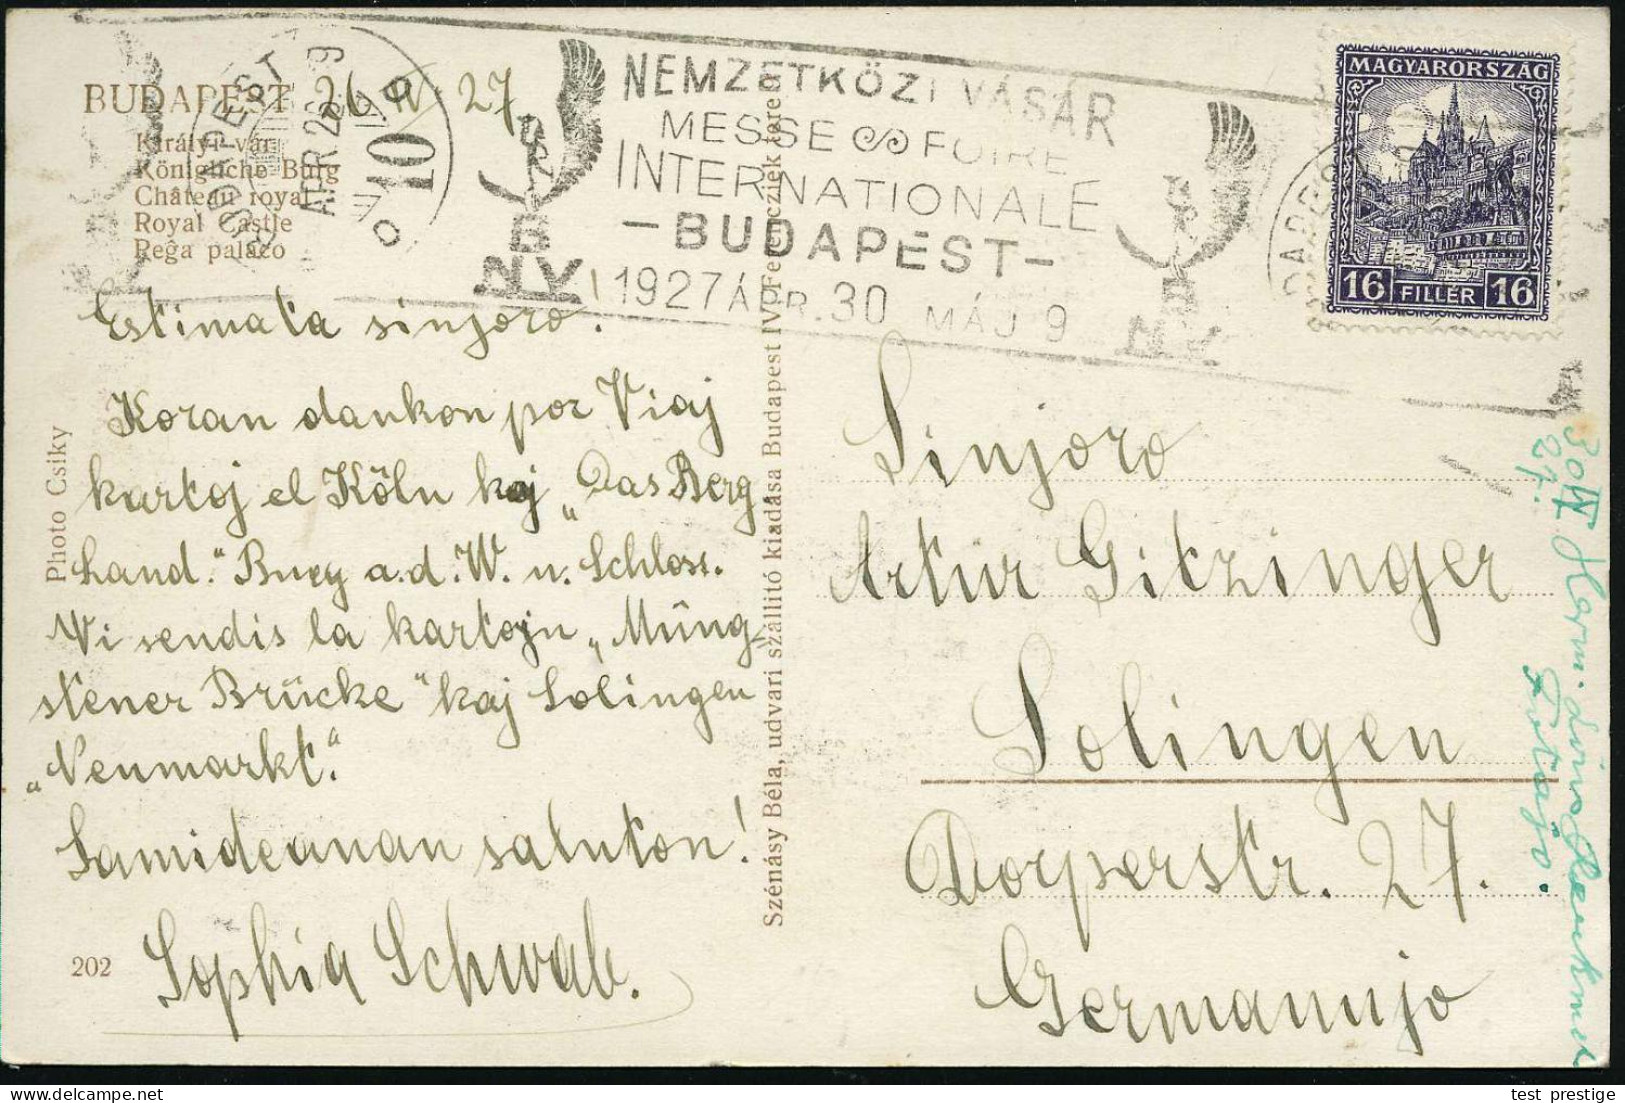 BUDAPEST 26 IV 27
Királyi vár
Königliche Burg
Château royal
Royal Castle
Reĝa palaco
APR 26
10
NEMZETKÖZI VÁSÁR
MESSE FOIRE
INTERNATIONALE
— BUDAPEST —
1927 ÁPR. 30 MÁJ 9
B
N.V.
B
N.V.
MAGYARORSZÁG
16 FILLÉR 16
Estimata sinjoro!
Koran dankon por Viaj
kartoj el Köln kaj „Das Berg
Land." Burg a.d. W. u. Schloss.
Vi sendis la kartojn „Müng-
stener Brücke" kaj Solingen
„Neumarkt."
Samideanan saluton!
Sophia Schwab.
202
Photo Csiky
Szénásy Béla, udvari szállitó kiadása Budapest IV. Ferencziek tere 9
Sinjoro
Artur Gitzinger
Solingen
Dorperstr. 27.
Germanujo
30 IV
27.
test_prestige